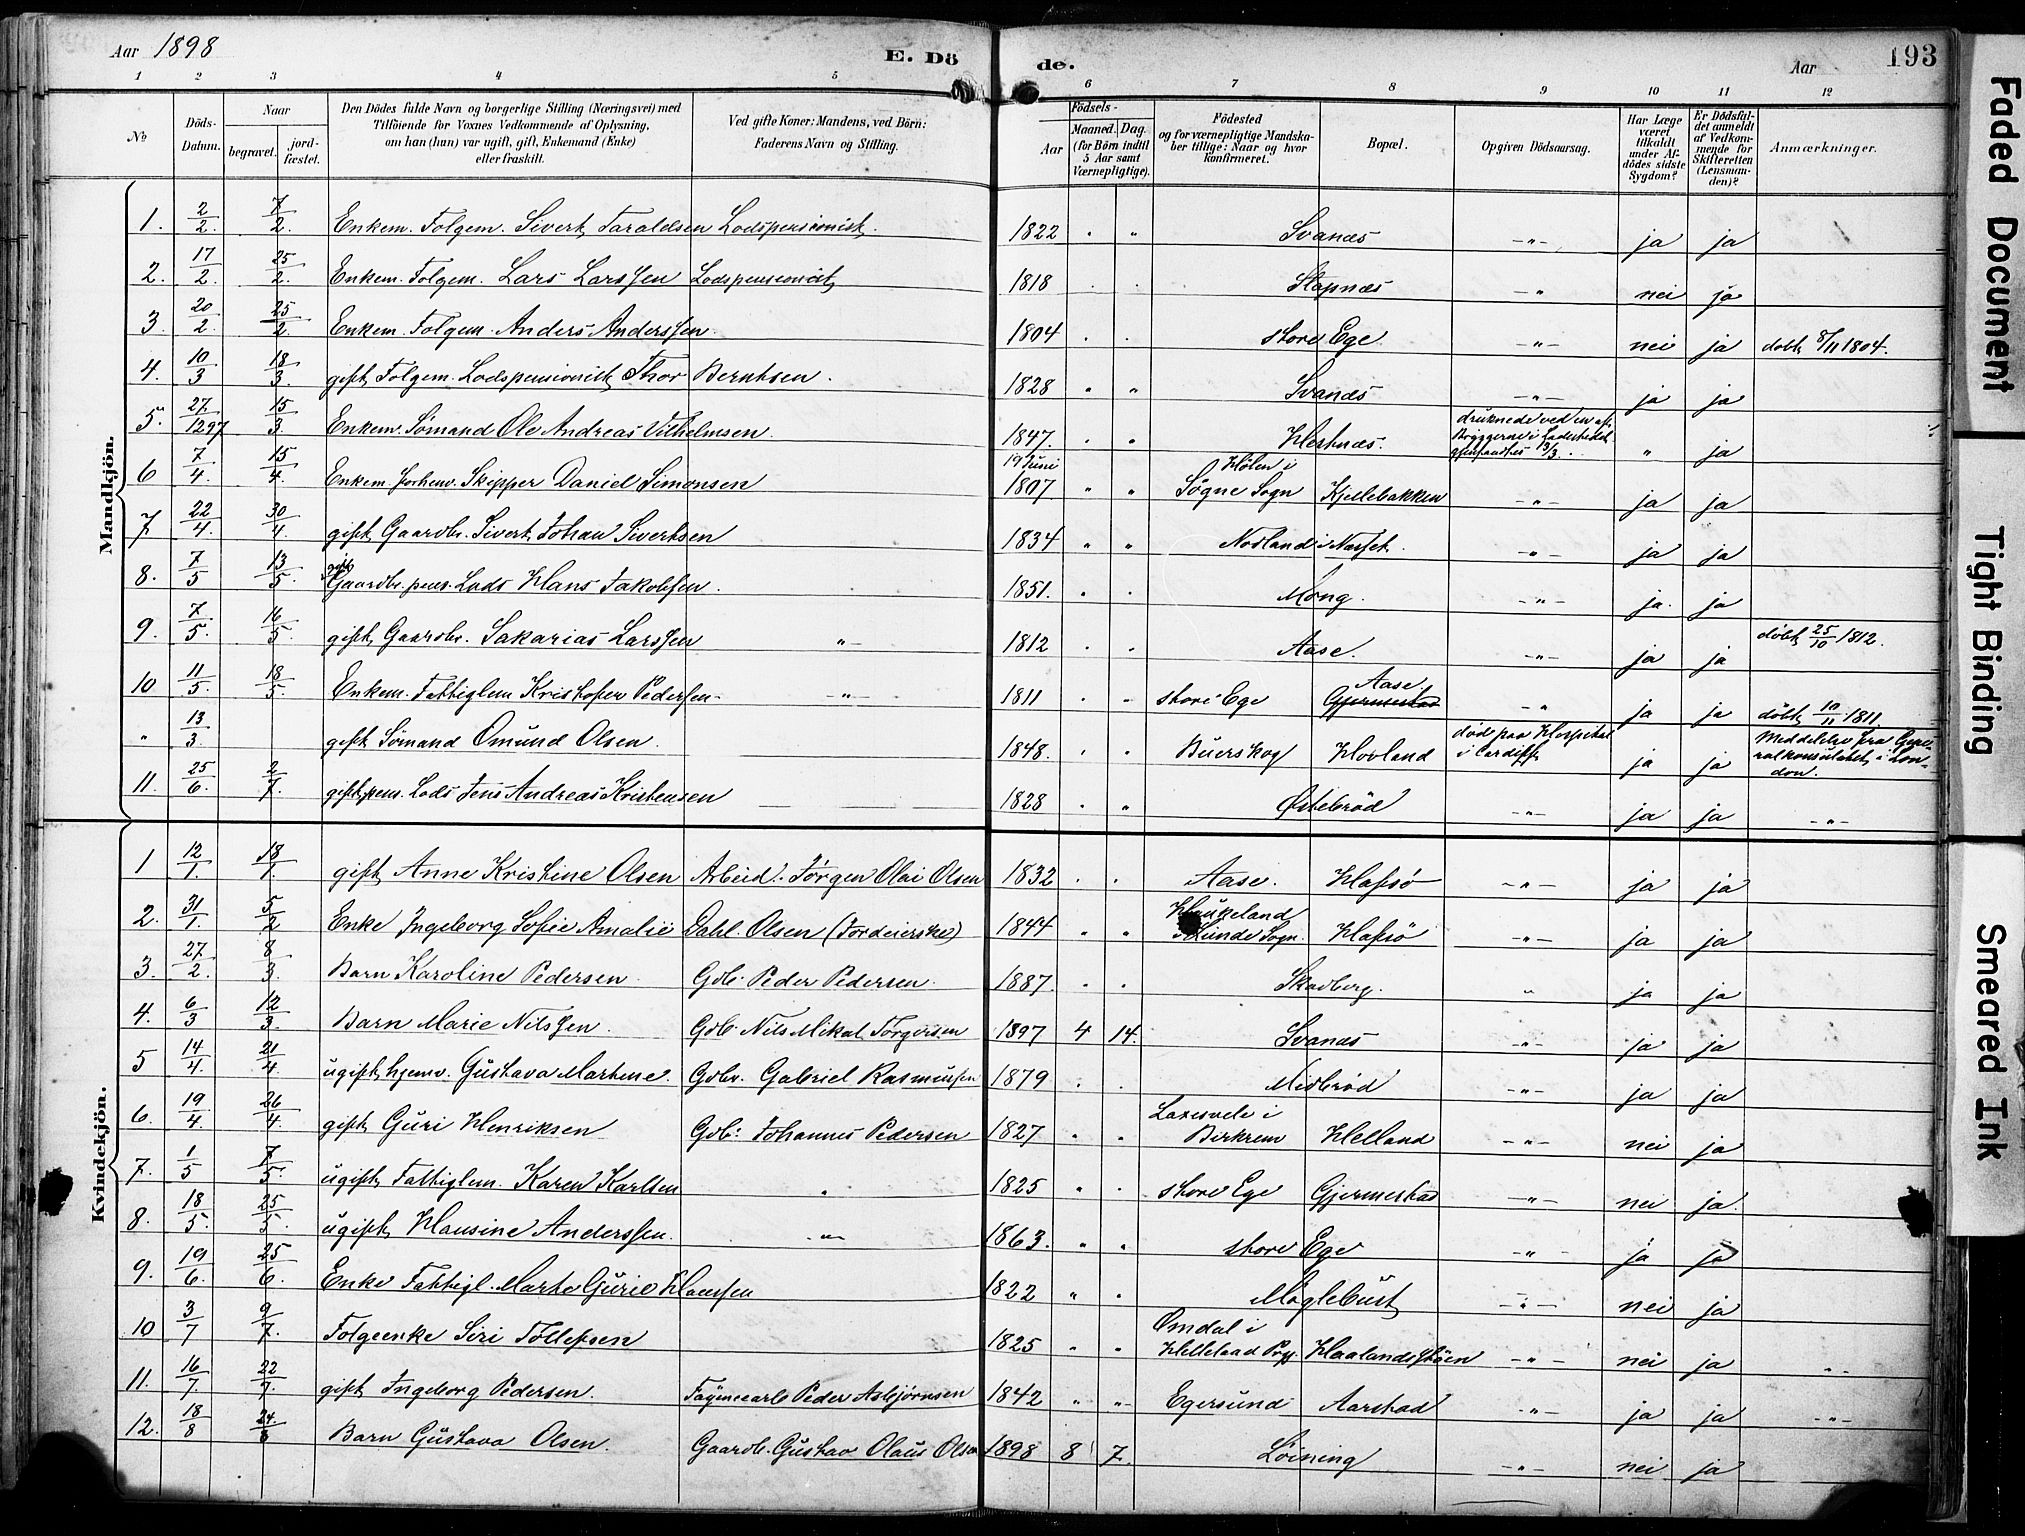 Aar 1898 E. Dö de. Aar 193
1 2 3 4 5 6 7 8 9 10 11 12
No
Döds-Datum.
Naar
begravet.
jord-fæstet.
Den Dödes fulde Navn og borgerlige Stilling (Næringsvei) med
Tilföiende for Voxnes Vedkommende af Oplysning,
om han (hun) var ugift, gift, Enkemand (Enke)
eller fraskilt.
Ved gifte Koner: Mandens, ved Börn:
Faderens Navn og Stilling.
Födsels-
Aar
Maaned. Dag.
(for Börn indtil
5 Aar samt
Værnepligtige).
Födested
og for værnepligtige Mandska-
ber tillige: Naar og hvor
konfirmeret.
Bopæl.
Opgiven Dödsaarsag.
Har Læge
været
tilkaldt
under Af-
dödes sidste
Sygdom?
Er Dödsfal-
det anmeldt
af Vedkom-
mende for
Skifteretten
(Lensman-
den)?
Anmærkninger.
Mandkjön.
1. 2/2. 7/2. Enkem. Folgem. Sivert Taraldsen Lodspensionist. 1822 " " Svanæs -"- ja ja
2. 17/2. 25/2. Enkem. Folgem. Lars Larssen Lodspensionist 1818 . . Stapnæs " nei ja
3. 20/2. 25/2. Enkem. Folgem. Anders Anderssen. 1804 . . store Ege -"- nei ja døbt 8/11 1804.
4. 10/3 18/3. gift Folgem. Lodspensionist Thor Berntsen. 1828 " " Svanæs -"- ja ja
5. 27/1297 15/3. Enkem. Sømand Ole Andreas Vilhelmsen. 1847. " " Hestnæs. druknede ved en af Bryggerne i Ladestedet gjenfandtes 13/3. " ja
6 7/4 15/4. Enkem. forhenv. Skipper Daniel Simonsen 19 Juni 1807 " " Hølen i Søgne Sogn Kjellebakken -"- ja ja
7 22/4. 30/4. gift Gaardbr. Sivert Johan Sivertsen 1834 " " Nodland i -"- ja ja
8. 7/5 13/5. gift Gaardbr. pens. Lods Hans Jakobsen. 1851. " . Mong. -"- ja. ja
9. 7/5. 16/5. gift Gaardbr. Sakarias Larssen -"- 1812 . . Aase. -"- ja ja døbt 25/10 1812.
10 11/5. 18/5. Enkem. Fattiglem Kristofer Pedersen -"- 1811 " . store Ege Aase Gjermestad " ja ja døbt 10/11 1811.
" 13/3. gift Sømand Omund Olsen. 1848. " . Buerskog Hovland død paa Hospital i Cardiff ja ja Meddelelse fra Gene-
ralkonsulatet i Lon-
don.
11. 25/6. 2/7. gift pens. Lods Jens Andreas Kristensen 1828 " " Østebrød -"- ja ja -"-
Kvindekjön.
1 12/1. 18/1. gift Anne Kristine Olsen Arbeid. Jörgen Olai Olsen 1832 . . Aase. Hafsø -"- ja ja
2. 31/1. 5/2 Enke Ingeborg Sofie Amalie Dahl. Olsen (Jordeierske) 1844 " " Haukeland i Lunde Sogn. Hafsø -"- ja ja
3. 27/2. 8/3. Barn Karoline Pedersen. Gdb. Peder Pedersen. 1887. . . Skadberg. " ja ja
4. 6/3 12/3. Barn Marie Nilssen. Gdb. Nils Mikal Törgersen 1897 4 14. Svanæs -"- ja ja
5 14/4. 21/4. ugift hjemv. Gustava Martine. Gdbr. Gabriel Rasmussen 1879 . . Midbrød -"- ja ja
6. 19/4. 26/4. gift Guri Henriksen Gdb. Johannes Pedersen 1827 " " Laxesvele i Birkrem Helland -"- nei ja
7. 1/5 7/5. ugift Fattiglem. Karen Karlsen " 1825 " . store Ege Gjermestad -"- nei ja.
8. 18/5. 25/5. ugift Hansine Anderssen. -"- 1863. " " store Ege -"- ja ja
9. 19/6. 25/6. Enke Fattigl. Marte Gurie Hanssen 1822 " " Møglebust -"- nei ja
10 3/7 9/7. Folgeenke Siri Tollefsen 1825 " " Omdal i Helleland Prgj. Haalandsstøen -"- nei ja "
11. 16/7. 22/7. gift Ingeborg Pedersen. Peder Asbjørnsen 1842 " " Egersund Aarstad -"- ja ja -"-
12. 18/8 24/8 Barn Gustava Olsen. Gaardb. Gustav Olaus Olsen 1898 8 7. Løining -"- nei ja
Faded Document
Tight Binding
Smeared Ink